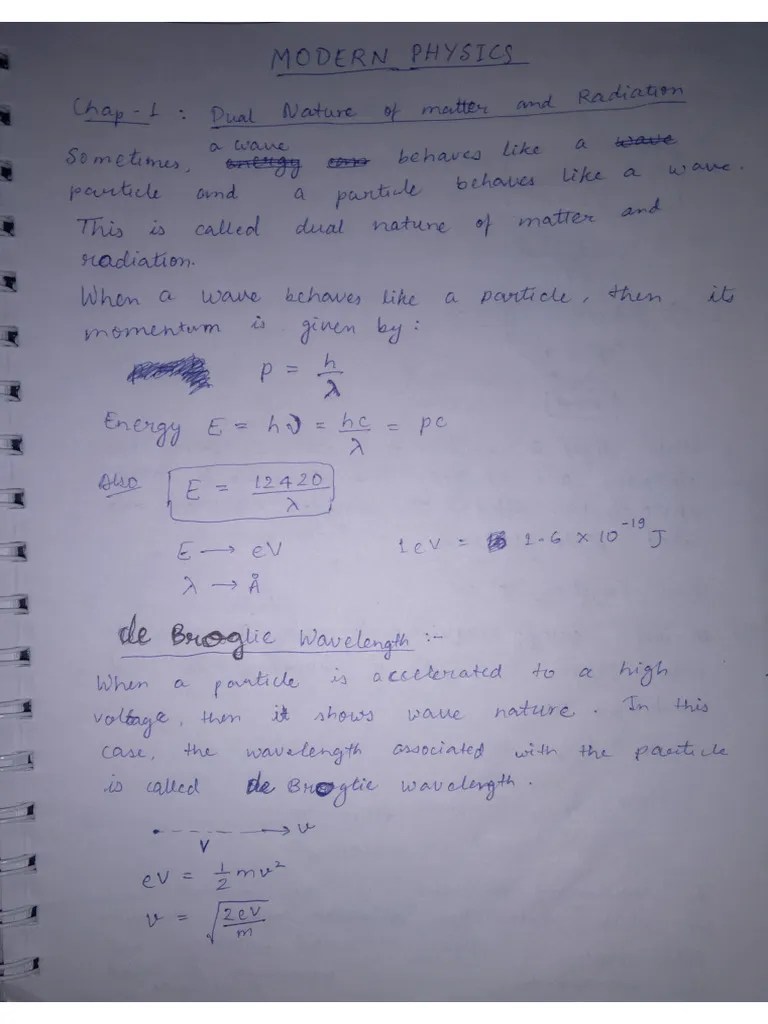 MODERN PHYSICS
Chap-1 : Dual Nature of matter and Radiation
a wave
Sometimes, energy behaves like a wave
particle and a particle behaves like a wave.
This is called dual nature of matter and
radiation.
When a wave behaves like a particle, then its
momentum is given by :
p = h/λ
Energy E = hν = hc/λ = pc
Also E = 12420/λ
E → eV 1eV = 1.6 × 10⁻¹⁹ J
λ → Å
de Broglie Wavelength :-
When a particle is accelerated to a high
voltage, then it shows wave nature. In this
case, the wavelength associated with the particle
is called de Broglie wavelength.
→ v
V
eV = 1/2 mv²
v = √(2eV/m)